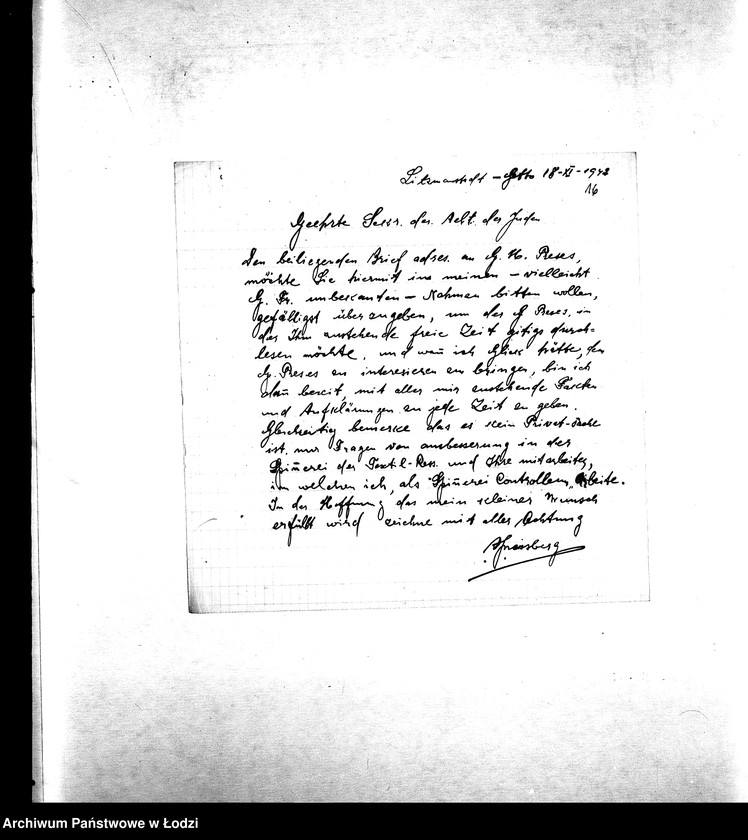 Litzmannstadt - Getto 18-XI-1943
16
Geehrte Secr. des. Aelt. der Juden
Den beiliegenden Brief adres. an G. H. Preses,
möchte Sie hiermit ins meinen - vielleicht
G. Fr. unbekanden - Nahmen bitten wollen,
gefälligst überzugeben, um der G Preses, in
der Ihm zustehende freie Zeit gitigs durch-
lesen möchte, und wan̄ ich Glück hätte, den
G. Preses zu interesieren zu bringen, bin ich
dan̄ bereit, mit alles mir zustehende
und Aufklärungen zu jede Zeit zu geben.
Gleichzeitig bemerke das es kein Privat-sache
ist, nur Fragen von ausbesserung in der
Spin̄erei der Textil-Ress. und Ihre mitarbeiter,
in welchen ich, als Spin̄erei Controlleur, Arbeite.
In der Hoffnung das mein kleiner Wunsch
erfüllt wird zeichne mit aller Achtung
Archiwum Państwowe w Łodzi